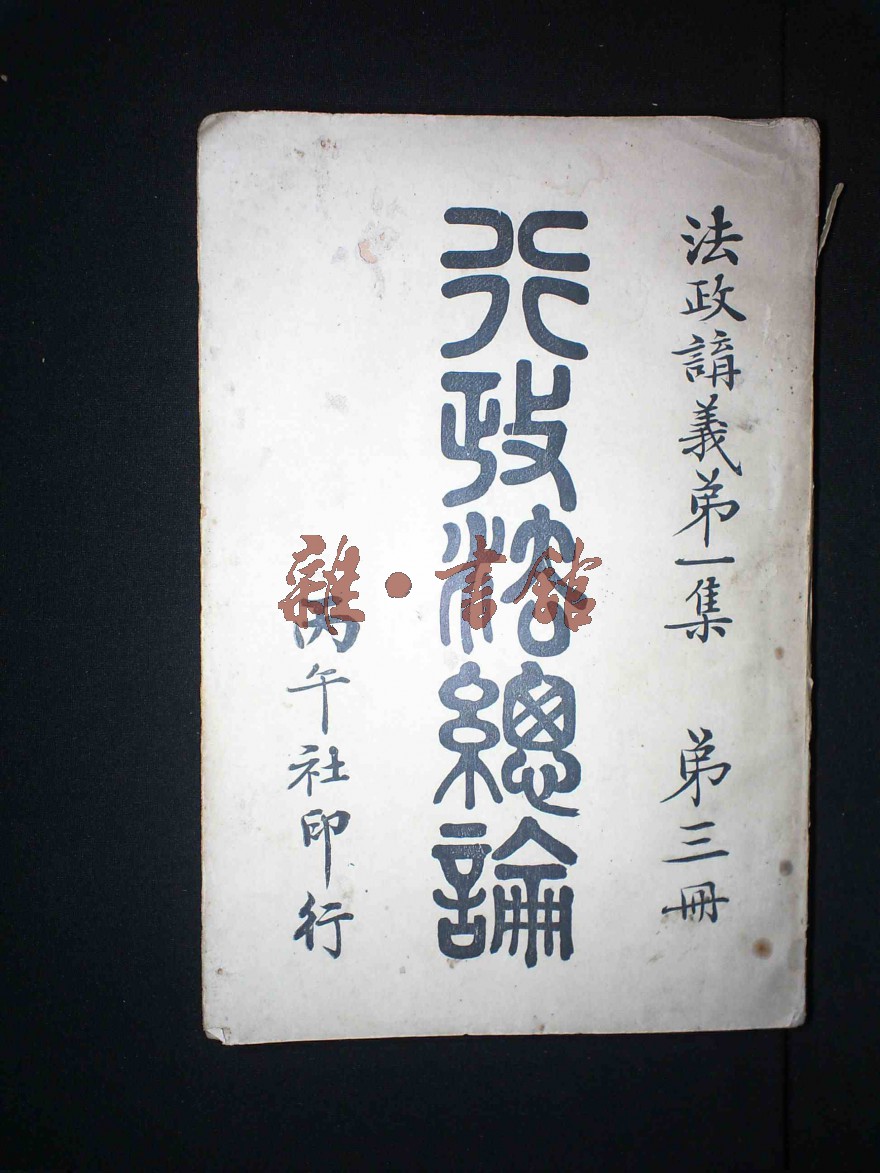 法政講義弟一集 弟三冊
行政法總論
丙午社印行
雜·書館